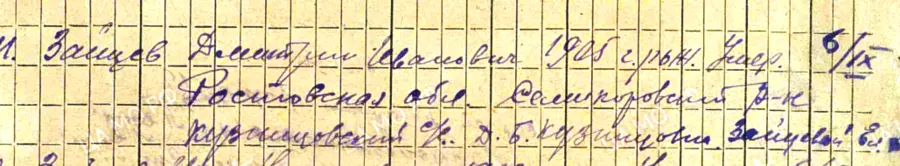 1. Зайцев Дмитрий Иванович 1905 г.рожд. Умер 6/IX
Ростовская обл. Семикоровский р-н
Кузнецовский с/с. Д. Б. Кузнецовка Зайцевой Ел